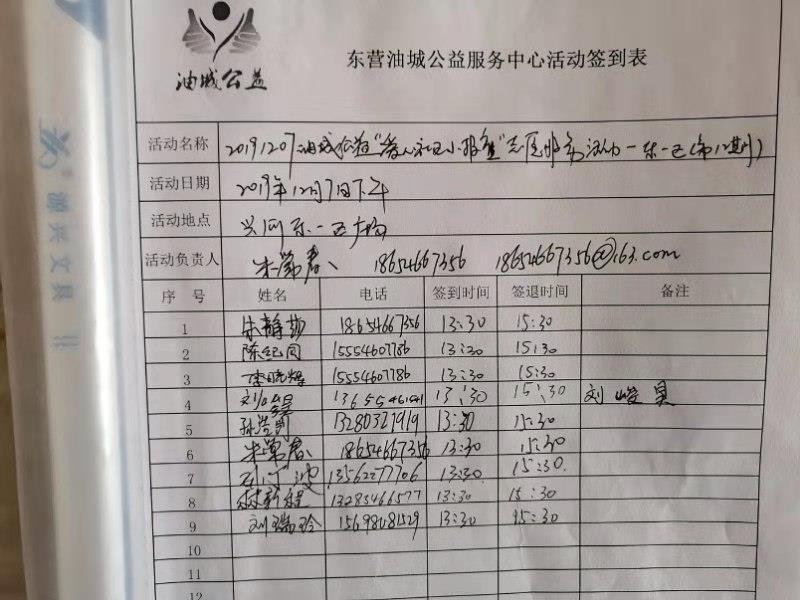 油城公益
东营油城公益服务中心活动签到表
活动名称 20191207油城公益"爱心社区小课堂"志愿服务活动-东一区(第12期)
活动日期 2019年12月7日下午
活动地点 兴河东一区广场
活动负责人 朱常春 18654667356 18654667356@163.com
序号 姓名 电话 签到时间 签退时间 备注
1 朱静莎 18654667356 13:30 15:30
2 陈纪同 15554607786 13:30 15:30
3 李晓辉 15554607786 13:30 15:30
4 刘峻昊 13:30 15:30 刘峻昊
5 13280327919 13:30 15:30
6 朱常春 18654667356 13:30 15:30
7 13562277706 13:30 15:30
8 林新程 13283466577 13:30 15:30
9 刘瑞玲 15698081529 13:30 15:30
10
11
12
源兴文具